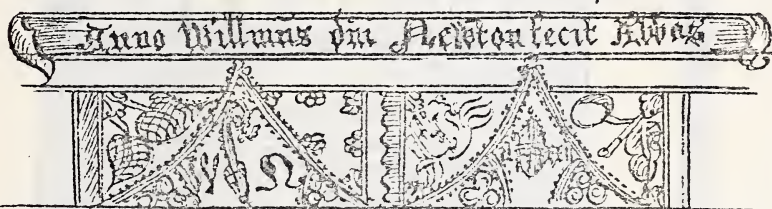 Anno Willmus dni Newton fecit Abbas